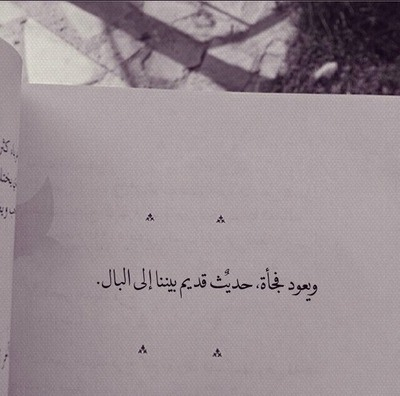 ويعود فجأة، حديثٌ قديم بيننا إلى البال.